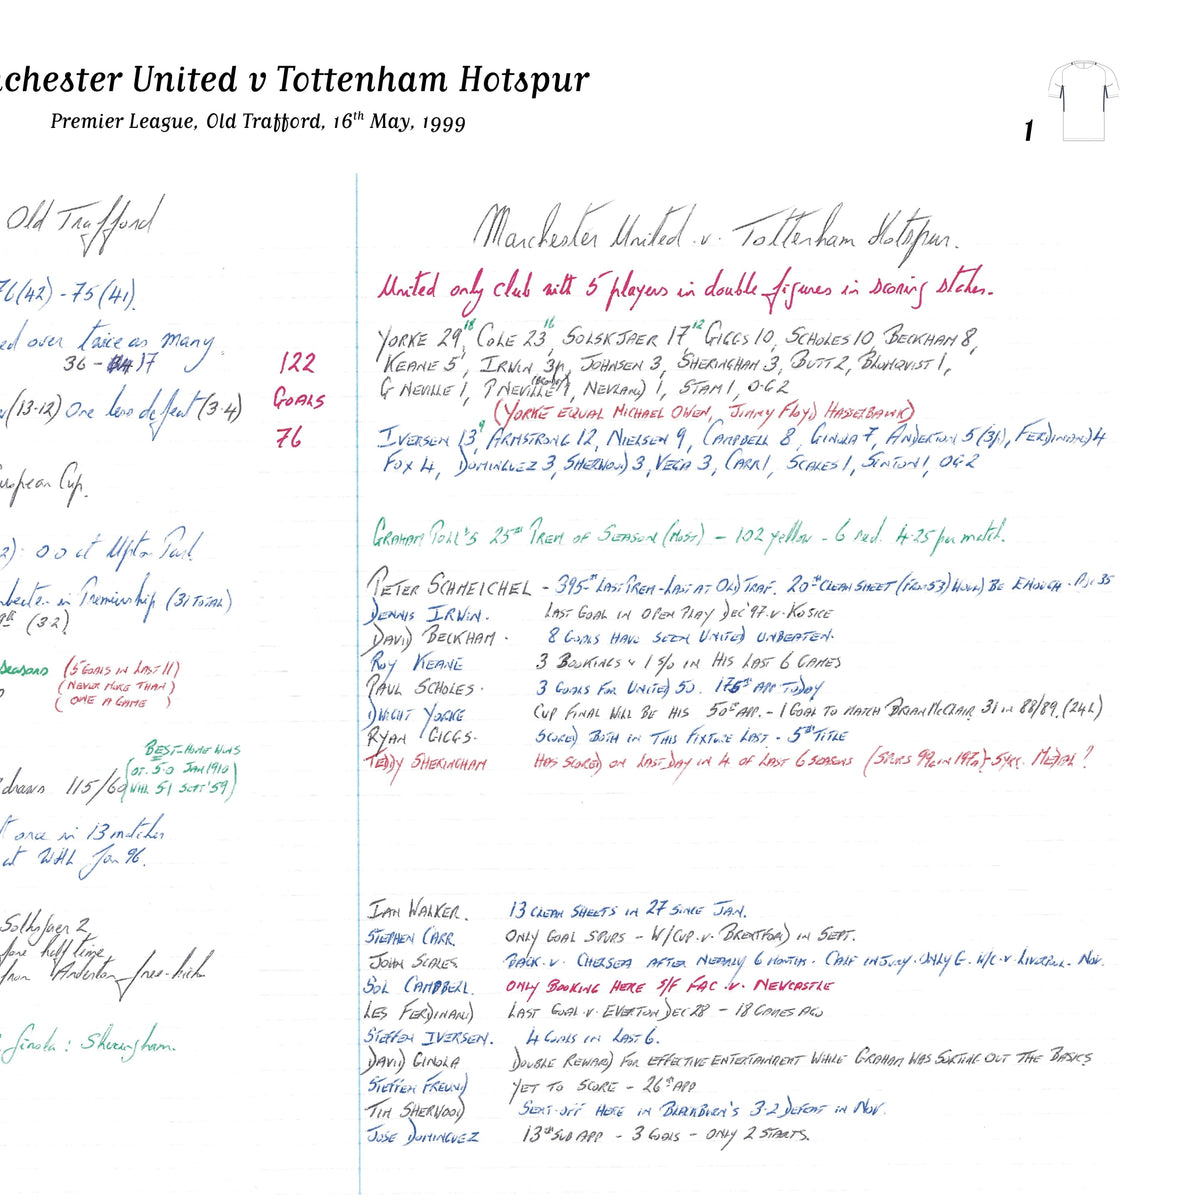 chester United v Tottenham Hotspur
Premier League, Old Trafford, 16th May, 1999
1
Old Trafford
76(42) - 75(41).
ed over twice as many.
36 - 17
(13-12) One less defeat (3-4)
122
GOALS
76
uropean Cup.
2): 0 0 at Upton Park
in Premiership (31 TOTAL)
(32)
Seasons (5 GOALS IN LAST 11)
(NEVER MORE THAN)
( ONE A GAME )
BEST HOME WINS
(OT. 5.0 JAN 1910)
draws 115/60 (WHL 5 1 SEPT '59)
t once in 13 matches
at WHL Jan 96.
Solksjaer 2,
fore half time
from Anderton free-kick
Ginola: Sheringham.
Manchester United .v. Tottenham Hotspur.
United only club with 5 players in double figures in scoring stakes.
YORKE 29 18, COLE 23 16, SOLSKJAER 17 12 GIGGS 10, SCHOLES 10, BECKHAM 8,
KEANE 5, IRWIN 3p, JOHNSEN 3, SHERINGHAM 3, BUTT 2, BLOMQVIST 1,
G NEVILLE 1, P NEVILLE 1, NEVLAND 1, STAM 1, O.G 2
(YORKE EQUAL MICHAEL OWEN, JIMMY FLOYD HASSELBAINK)
IVERSEN 13 9, ARMSTRONG 12, NIELSEN 9, CAMPBELL 8, GINOLA 7, ANDERTON 5 (3p), FERDINAND 4
FOX 4, DOMINGUEZ 3, SHERWOOD 3, VEGA 3, CARR 1, SCALES 1, SINTON 1, OG 2
GRAHAM POLL'S 25th PREM OF SEASON (MOST) - 102 yellow - 6 red. 4.25 per match.
PETER SCHMEICHEL - 395th LAST PREM - LAST AT OLD TRAF. 20th CLEAN SHEET (FROM 53) WOULD BE ENOUGH. 35
DENNIS IRWIN. LAST GOAL IN OPEN PLAY DEC '97 .v. KOSICE
DAVID BECKHAM. 8 GOALS HAVE SEEN UNITED UNBEATEN.
ROY KEANE 3 BOOKINGS + 1 S/O IN HIS LAST 6 GAMES
PAUL SCHOLES. 3 GOALS FOR UNITED 50. 175th APP TODAY
DWIGHT YORKE CUP FINAL WILL BE HIS 50th APP. - 1 GOAL TO MATCH BRIAN McCLAIR 31 in 88/89. (24L)
RYAN GIGGS. SCORED BOTH IN THIS FIXTURE LAST - 5th TITLE
TEDDY SHERINGHAM HAS SCORED ON LAST DAY IN 4 OF LAST 6 SEASONS (SPURS 92 in 197)- 5yrs. MEDAL?
IAN WALKER. 13 CLEAN SHEETS IN 27 SINCE JAN.
STEPHEN CARR. ONLY GOAL SPURS - W/CUP .v. BRENTFORD IN SEPT.
JOHN SCALES BACK .v. CHELSEA AFTER NEARLY 6 MONTHS. CALF INJURY. ONLY G. W/C .v. LIVERPOOL. NOV.
SOL CAMPBELL. ONLY BOOKING HERE S/F FAC .v. NEWCASTLE
LES FERDINAND LAST GOAL .v. EVERTON DEC 28 - 18 GAMES AGO
STEFFEN IVERSEN. 4 GOALS IN LAST 6.
DAVID GINOLA DOUBLE REWARD FOR EFFECTIVE ENTERTAINMENT WHILE GRAHAM WAS SORTING OUT THE BASICS
STEFFEN FREUND YET TO SCORE - 26th APP
TIM SHERWOOD SENT-OFF HERE IN BLACKBURN'S 3-2 DEFEAT IN NOV.
JOSE DOMINGUEZ 13th SUB APP - 3 GOALS - ONLY 2 STARTS.